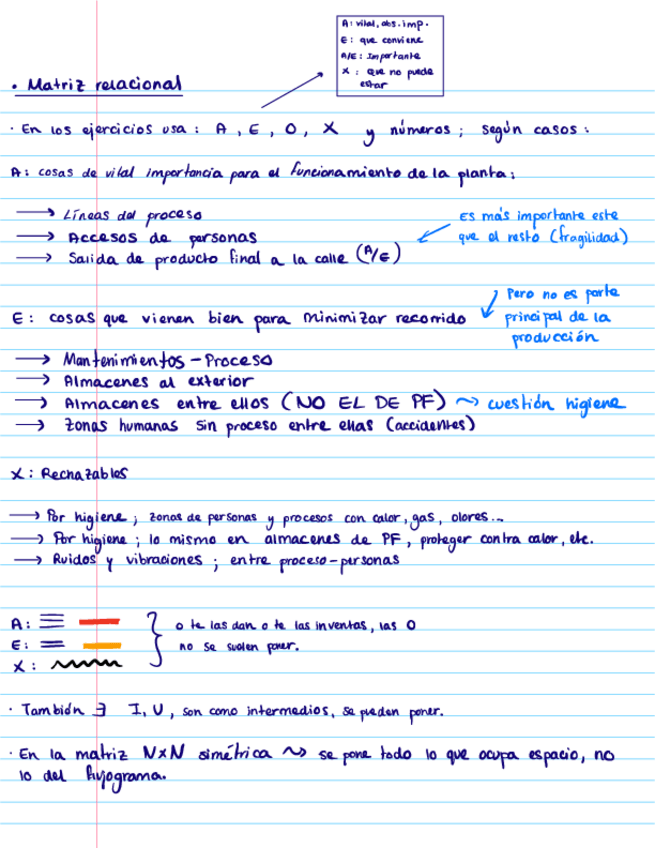 A: vital, abs. imp.
E: que conviene
A/E: Importante
X: Que no puede
estar
• Matriz relacional
· En los ejercicios usa: A, E, O, X y números; según casos:
A: cosas de vital importancia para el funcionamiento de la planta:
→ Líneas del proceso
→ Accesos de personas
→ Salida de producto final a la calle (A/E)
Es más importante este
que el resto (fragilidad)
E: cosas que vienen bien para minimizar recorrido
Pero no es parte
principal de la
producción
→ Mantenimientos - Proceso
→ Almacenes al exterior
→ Almacenes entre ellos (NO EL DE PF) ~> cuestión higiene
→ Zonas humanas sin proceso entre ellas (accidentes)
X: Rechazables
→ Por higiene; zonas de personas y procesos con calor, gas, olores...
→ Por higiene; lo mismo en almacenes de PF, proteger contra calor, etc.
→ Ruidos y vibraciones; entre proceso-personas
A:
E:
X:
o te las dan o te las inventas, las O
no se suelen poner.
· También ∃ I, U, son como intermedios, se pueden poner.
· En la matriz NxN simétrica ~> se pone todo lo que ocupa espacio, no
lo del flujograma.